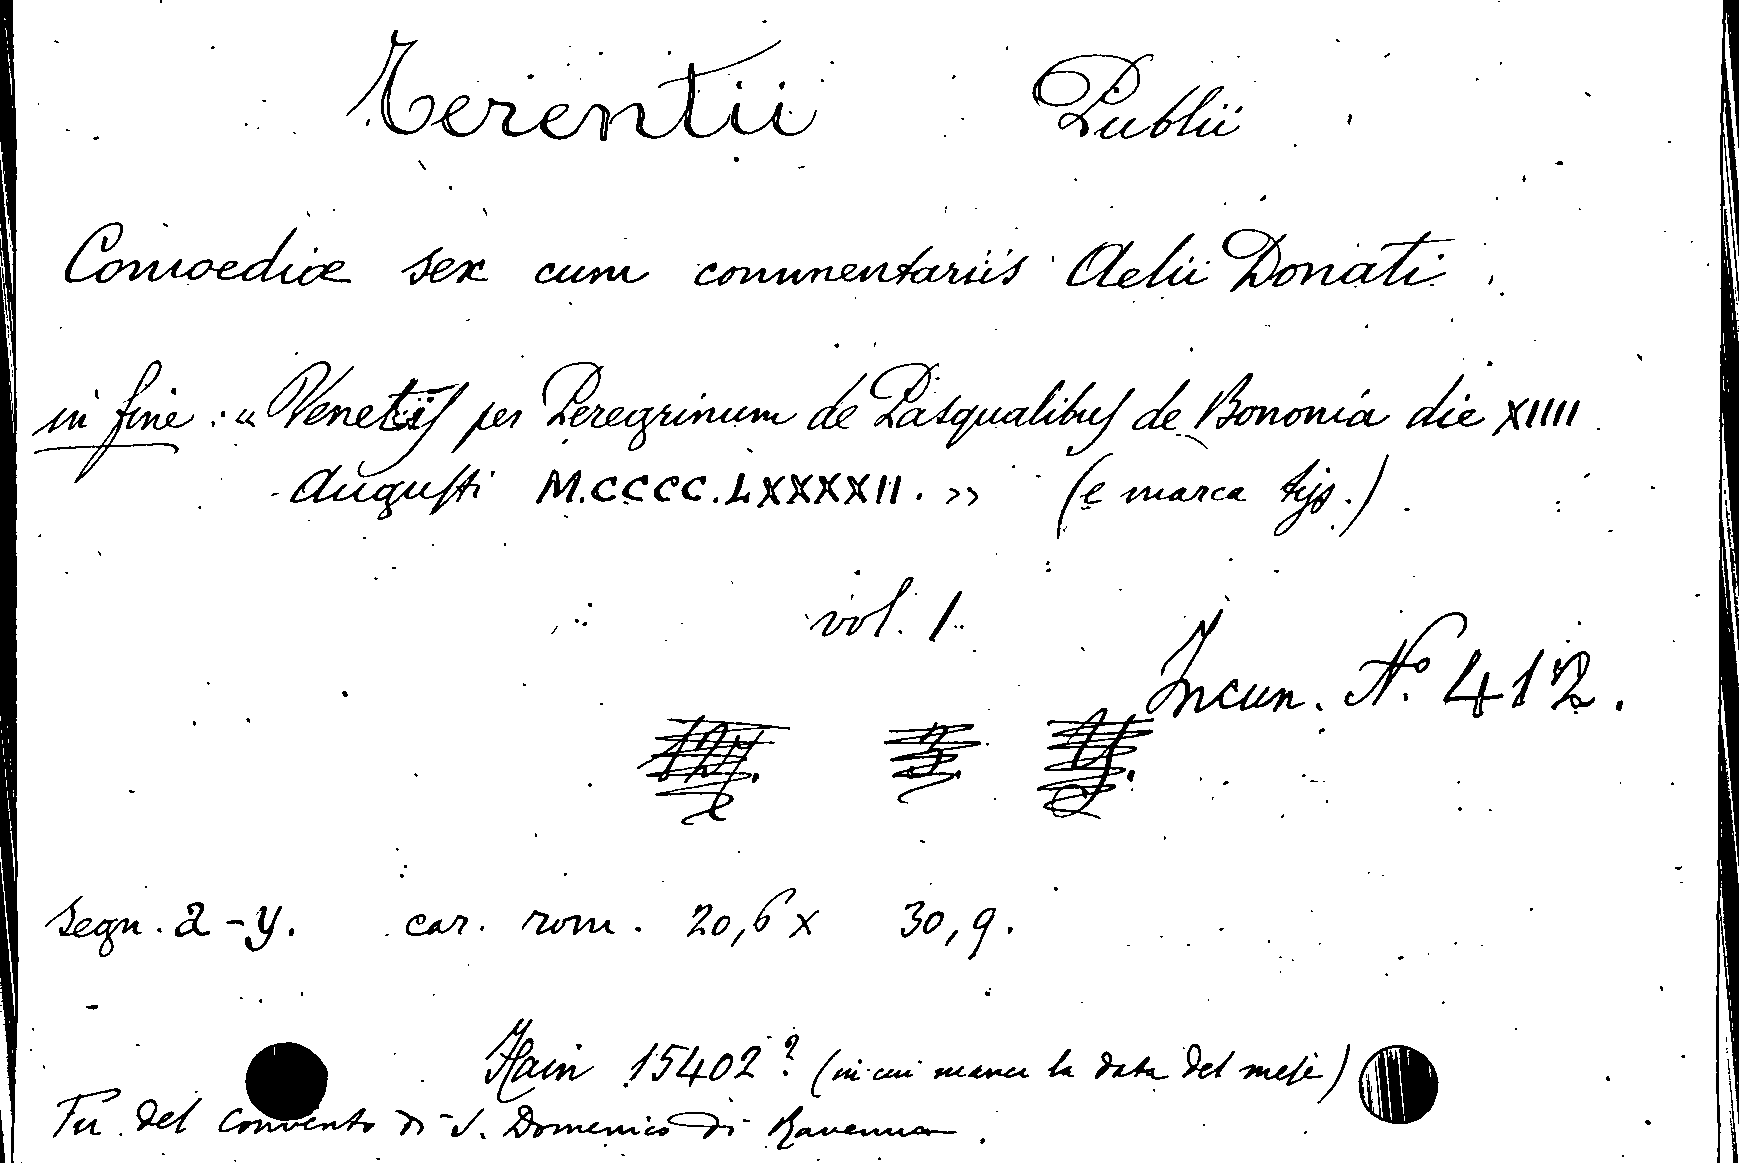 Terentii Publii
Comoediæ sex cum commentariis Aelii Donati
in fine : « Venetijs per Peregrinum de Pasqualibus de Bononia die XIIII
Augusti M.CCCC.LXXXXII. » (e marca tip.)
vol. 1.
Incun. Nº 412.
segn. a-y. car. rom. 20,6 x 30,9.
Hain 15402? (in cui manca la data del mese)
Fu del convento di S. Domenico di Ravenna.